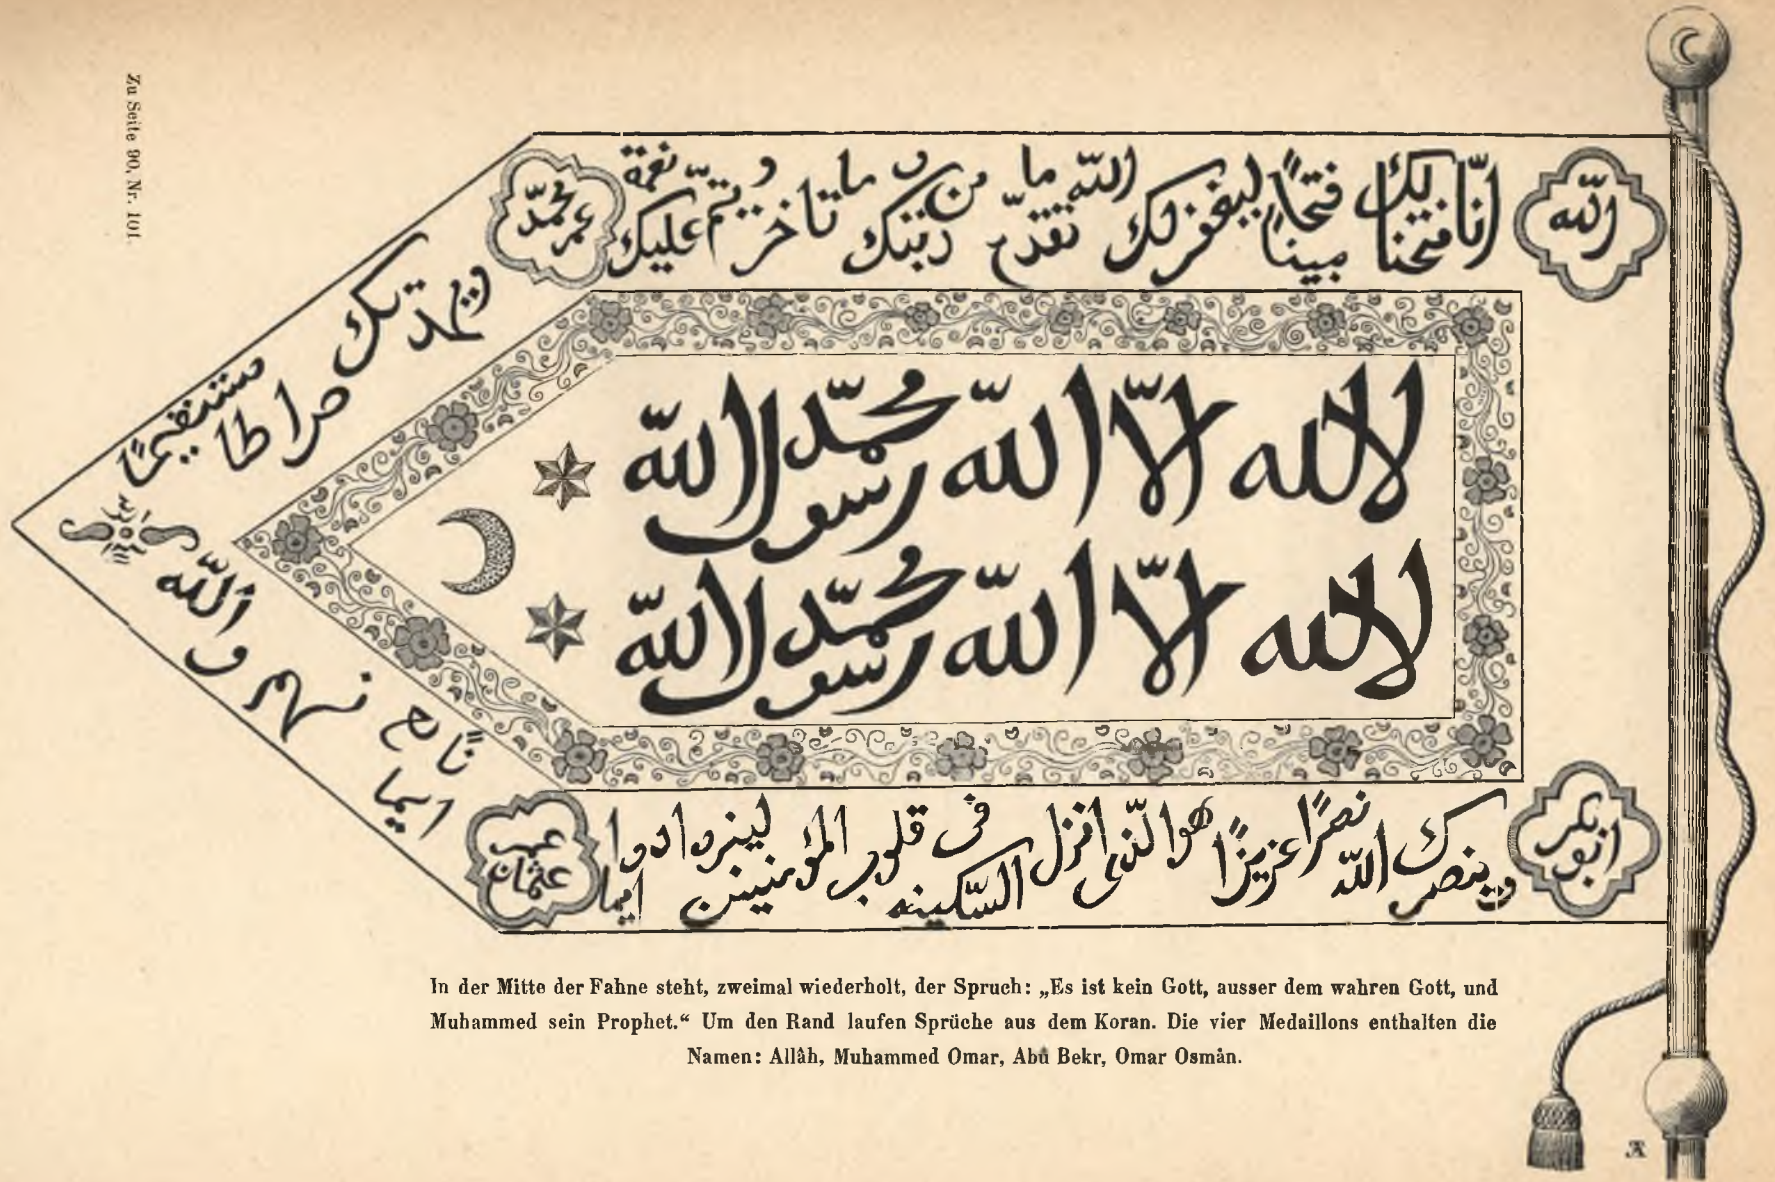 Zu Seite 90, Nr. 101.
الله
انّا فتحنا لك فتحاً مبيناً ليغفر لك الله ما تقدّم من ذنبك و ما تاخّر و يتمّ نعمة عليك
محمّد عمر
ويهديك صراطا مستقيمًا
لااله الّا الله محمّد رسول الله
لااله الّا الله محمّد رسول الله
ابو بكر
وينصرك الله نصرًا عزيزًا هو الّذى انزل السّكينه فى قلوب المؤمنين ليزدادوا ايما
عمر عثمان
ايمانًا مع
و الله
In der Mitte der Fahne steht, zweimal wiederholt, der Spruch: „Es ist kein Gott, ausser dem wahren Gott, und
Muhammed sein Prophet.“ Um den Rand laufen Sprüche aus dem Koran. Die vier Medaillons enthalten die
Namen: Allâh, Muhammed Omar, Abû Bekr, Omar Osmân.